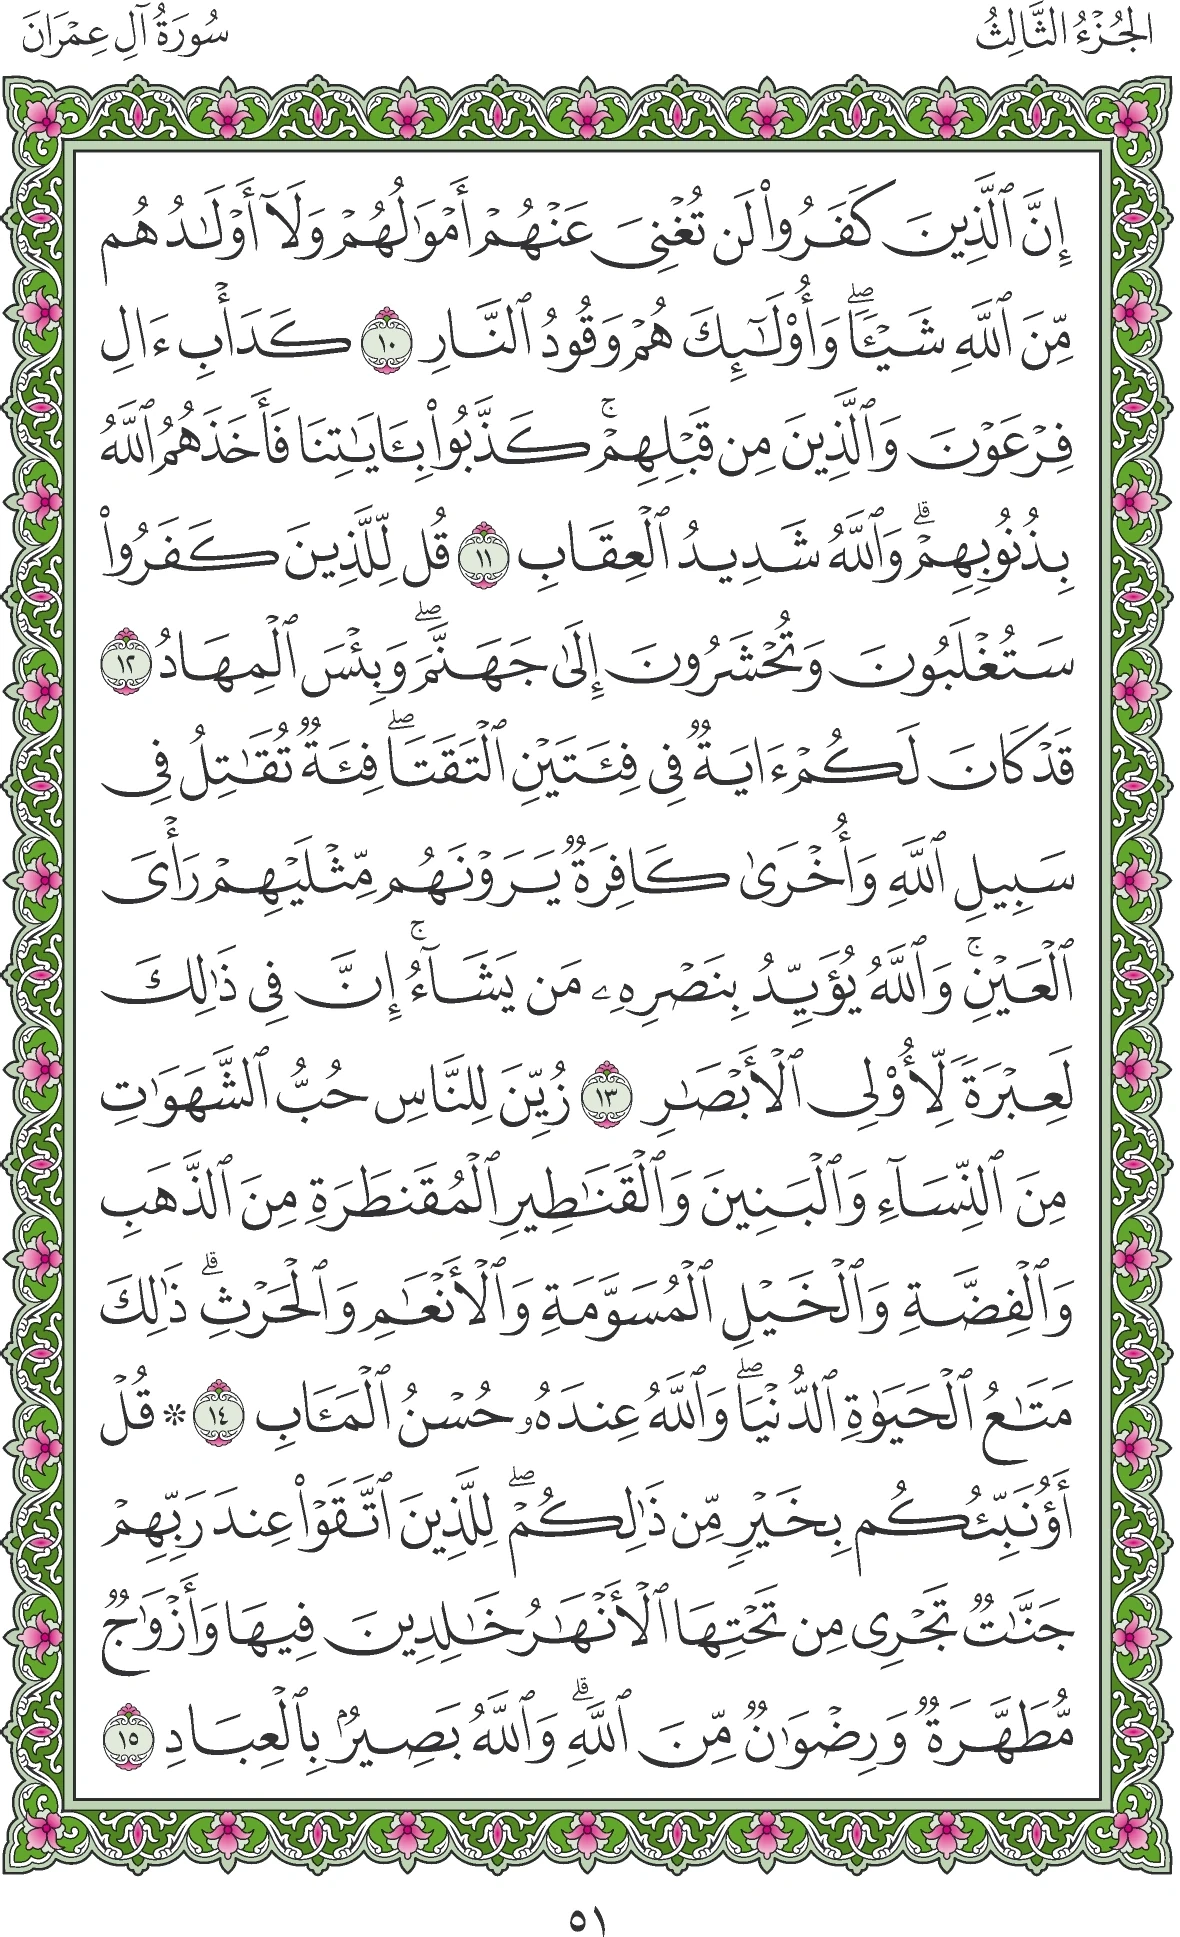 الجُزْءُ الثَّالِثُ
سُورَةُ آلِ عِمْرَانَ
إِنَّ ٱلَّذِينَ كَفَرُوا۟ لَن تُغْنِىَ عَنْهُمْ أَمْوَٰلُهُمْ وَلَآ أَوْلَـٰدُهُم
مِّنَ ٱللَّهِ شَيْـًٔا ۖ وَأُو۟لَـٰٓئِكَ هُمْ وَقُودُ ٱلنَّارِ ١٠ كَدَأْبِ ءَالِ
فِرْعَوْنَ وَٱلَّذِينَ مِن قَبْلِهِمْ ۚ كَذَّبُوا۟ بِـَٔايَـٰتِنَا فَأَخَذَهُمُ ٱللَّهُ
بِذُنُوبِهِمْ ۗ وَٱللَّهُ شَدِيدُ ٱلْعِقَابِ ١١ قُل لِّلَّذِينَ كَفَرُوا۟
سَتُغْلَبُونَ وَتُحْشَرُونَ إِلَىٰ جَهَنَّمَ ۖ وَبِئْسَ ٱلْمِهَادُ ١٢
قَدْ كَانَ لَكُمْ ءَايَةٌ فِى فِئَتَيْنِ ٱلْتَقَتَا ۖ فِئَةٌ تُقَـٰتِلُ فِى
سَبِيلِ ٱللَّهِ وَأُخْرَىٰ كَافِرَةٌ يَرَوْنَهُم مِّثْلَيْهِمْ رَأْىَ
ٱلْعَيْنِ ۚ وَٱللَّهُ يُؤَيِّدُ بِنَصْرِهِۦ مَن يَشَآءُ ۚ إِنَّ فِى ذَٰلِكَ
لَعِبْرَةً لِّأُو۟لِى ٱلْأَبْصَـٰرِ ١٣ زُيِّنَ لِلنَّاسِ حُبُّ ٱلشَّهَوَٰتِ
مِنَ ٱلنِّسَآءِ وَٱلْبَنِينَ وَٱلْقَنَـٰطِيرِ ٱلْمُقَنطَرَةِ مِنَ ٱلذَّهَبِ
وَٱلْفِضَّةِ وَٱلْخَيْلِ ٱلْمُسَوَّمَةِ وَٱلْأَنْعَـٰمِ وَٱلْحَرْثِ ۗ ذَٰلِكَ
مَتَـٰعُ ٱلْحَيَوٰةِ ٱلدُّنْيَا ۖ وَٱللَّهُ عِندَهُۥ حُسْنُ ٱلْمَـَٔابِ ١٤ * قُلْ
أَؤُنَبِّئُكُم بِخَيْرٍ مِّن ذَٰلِكُمْ ۖ لِلَّذِينَ ٱتَّقَوْا۟ عِندَ رَبِّهِمْ
جَنَّـٰتٌ تَجْرِى مِن تَحْتِهَا ٱلْأَنْهَـٰرُ خَـٰلِدِينَ فِيهَا وَأَزْوَٰجٌ
مُّطَهَّرَةٌ وَرِضْوَٰنٌ مِّنَ ٱللَّهِ ۗ وَٱللَّهُ بَصِيرٌۢ بِٱلْعِبَادِ ١٥
٥١